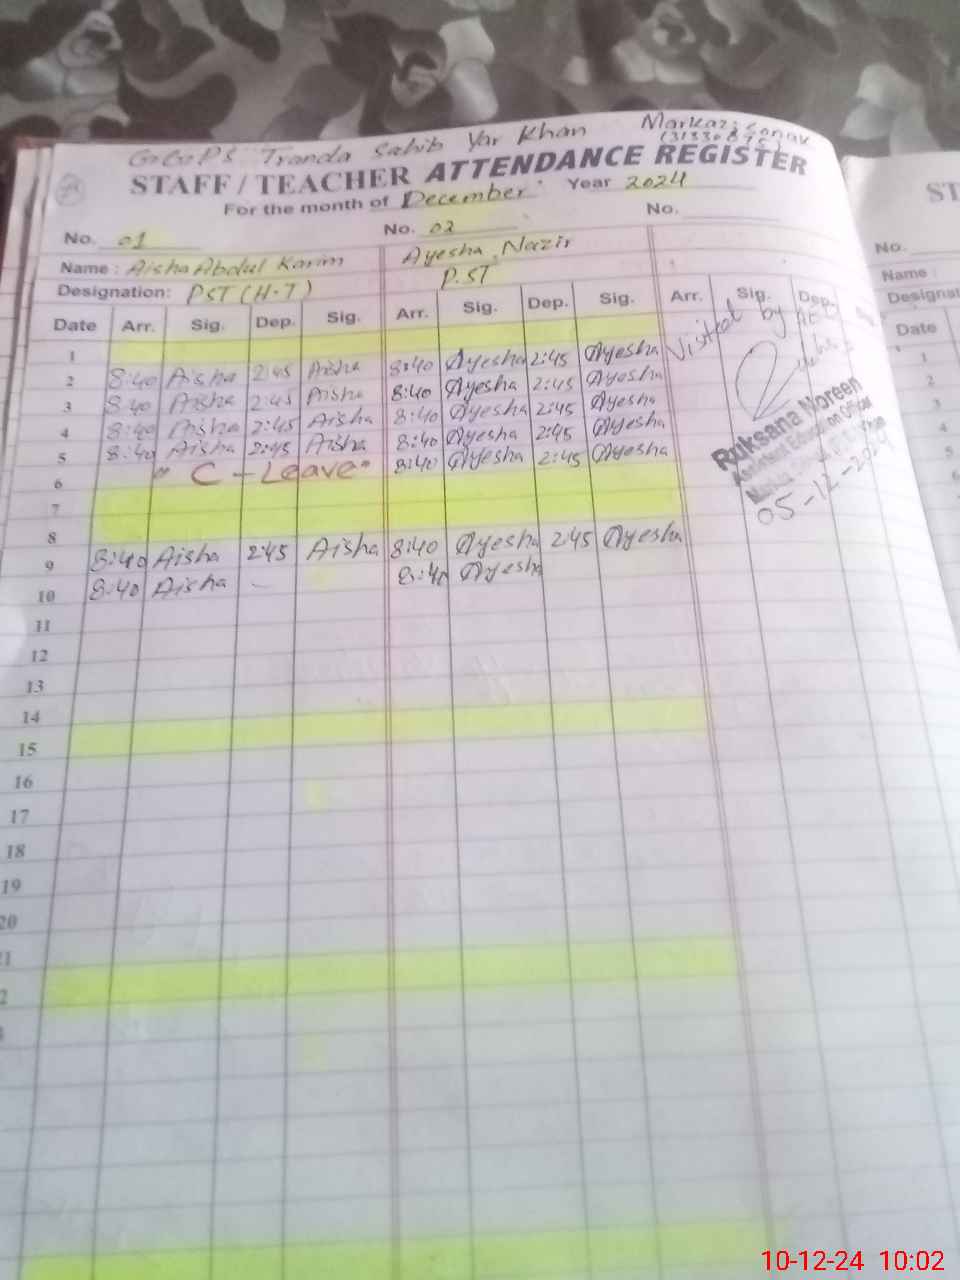 GGPS Tranda Sahib Yar Khan Markaz: Sonak
STAFF / TEACHER ATTENDANCE REGISTER
For the month of December Year 2024
No. 01 No. 02 No.
Name : Aisha Abdul Karim Ayesha Nazir
Designation: PST (H.T) P.ST
Date Arr. Sig. Dep. Sig. Arr. Sig. Dep. Sig. Arr. Sig. Dep.
1
2 8:40 Aisha 2:45 Aisha 8:40 Ayesha 2:45 Ayesha
3 8:40 Aisha 2:45 Aisha 8:40 Ayesha 2:45 Ayesha
4 8:40 Aisha 2:45 Aisha 8:40 Ayesha 2:45 Ayesha
5 8:40 Aisha 2:45 Aisha 8:40 Ayesha 2:45 Ayesha
6 " C - Leave " 8:40 Ayesha 2:45 Ayesha
7
8
9 8:40 Aisha 2:45 Aisha 8:40 Ayesha 2:45 Ayesha
10 8:40 Aisha - 8:40 Ayesha
11
12
13
14
15
16
17
18
19
20
Visited by AEO
Ruksana Noreen
Assistant Education Officer
05-12-2024
ST
No.
Name :
Designat
Date
1
2
3
4
5
10-12-24 10:02